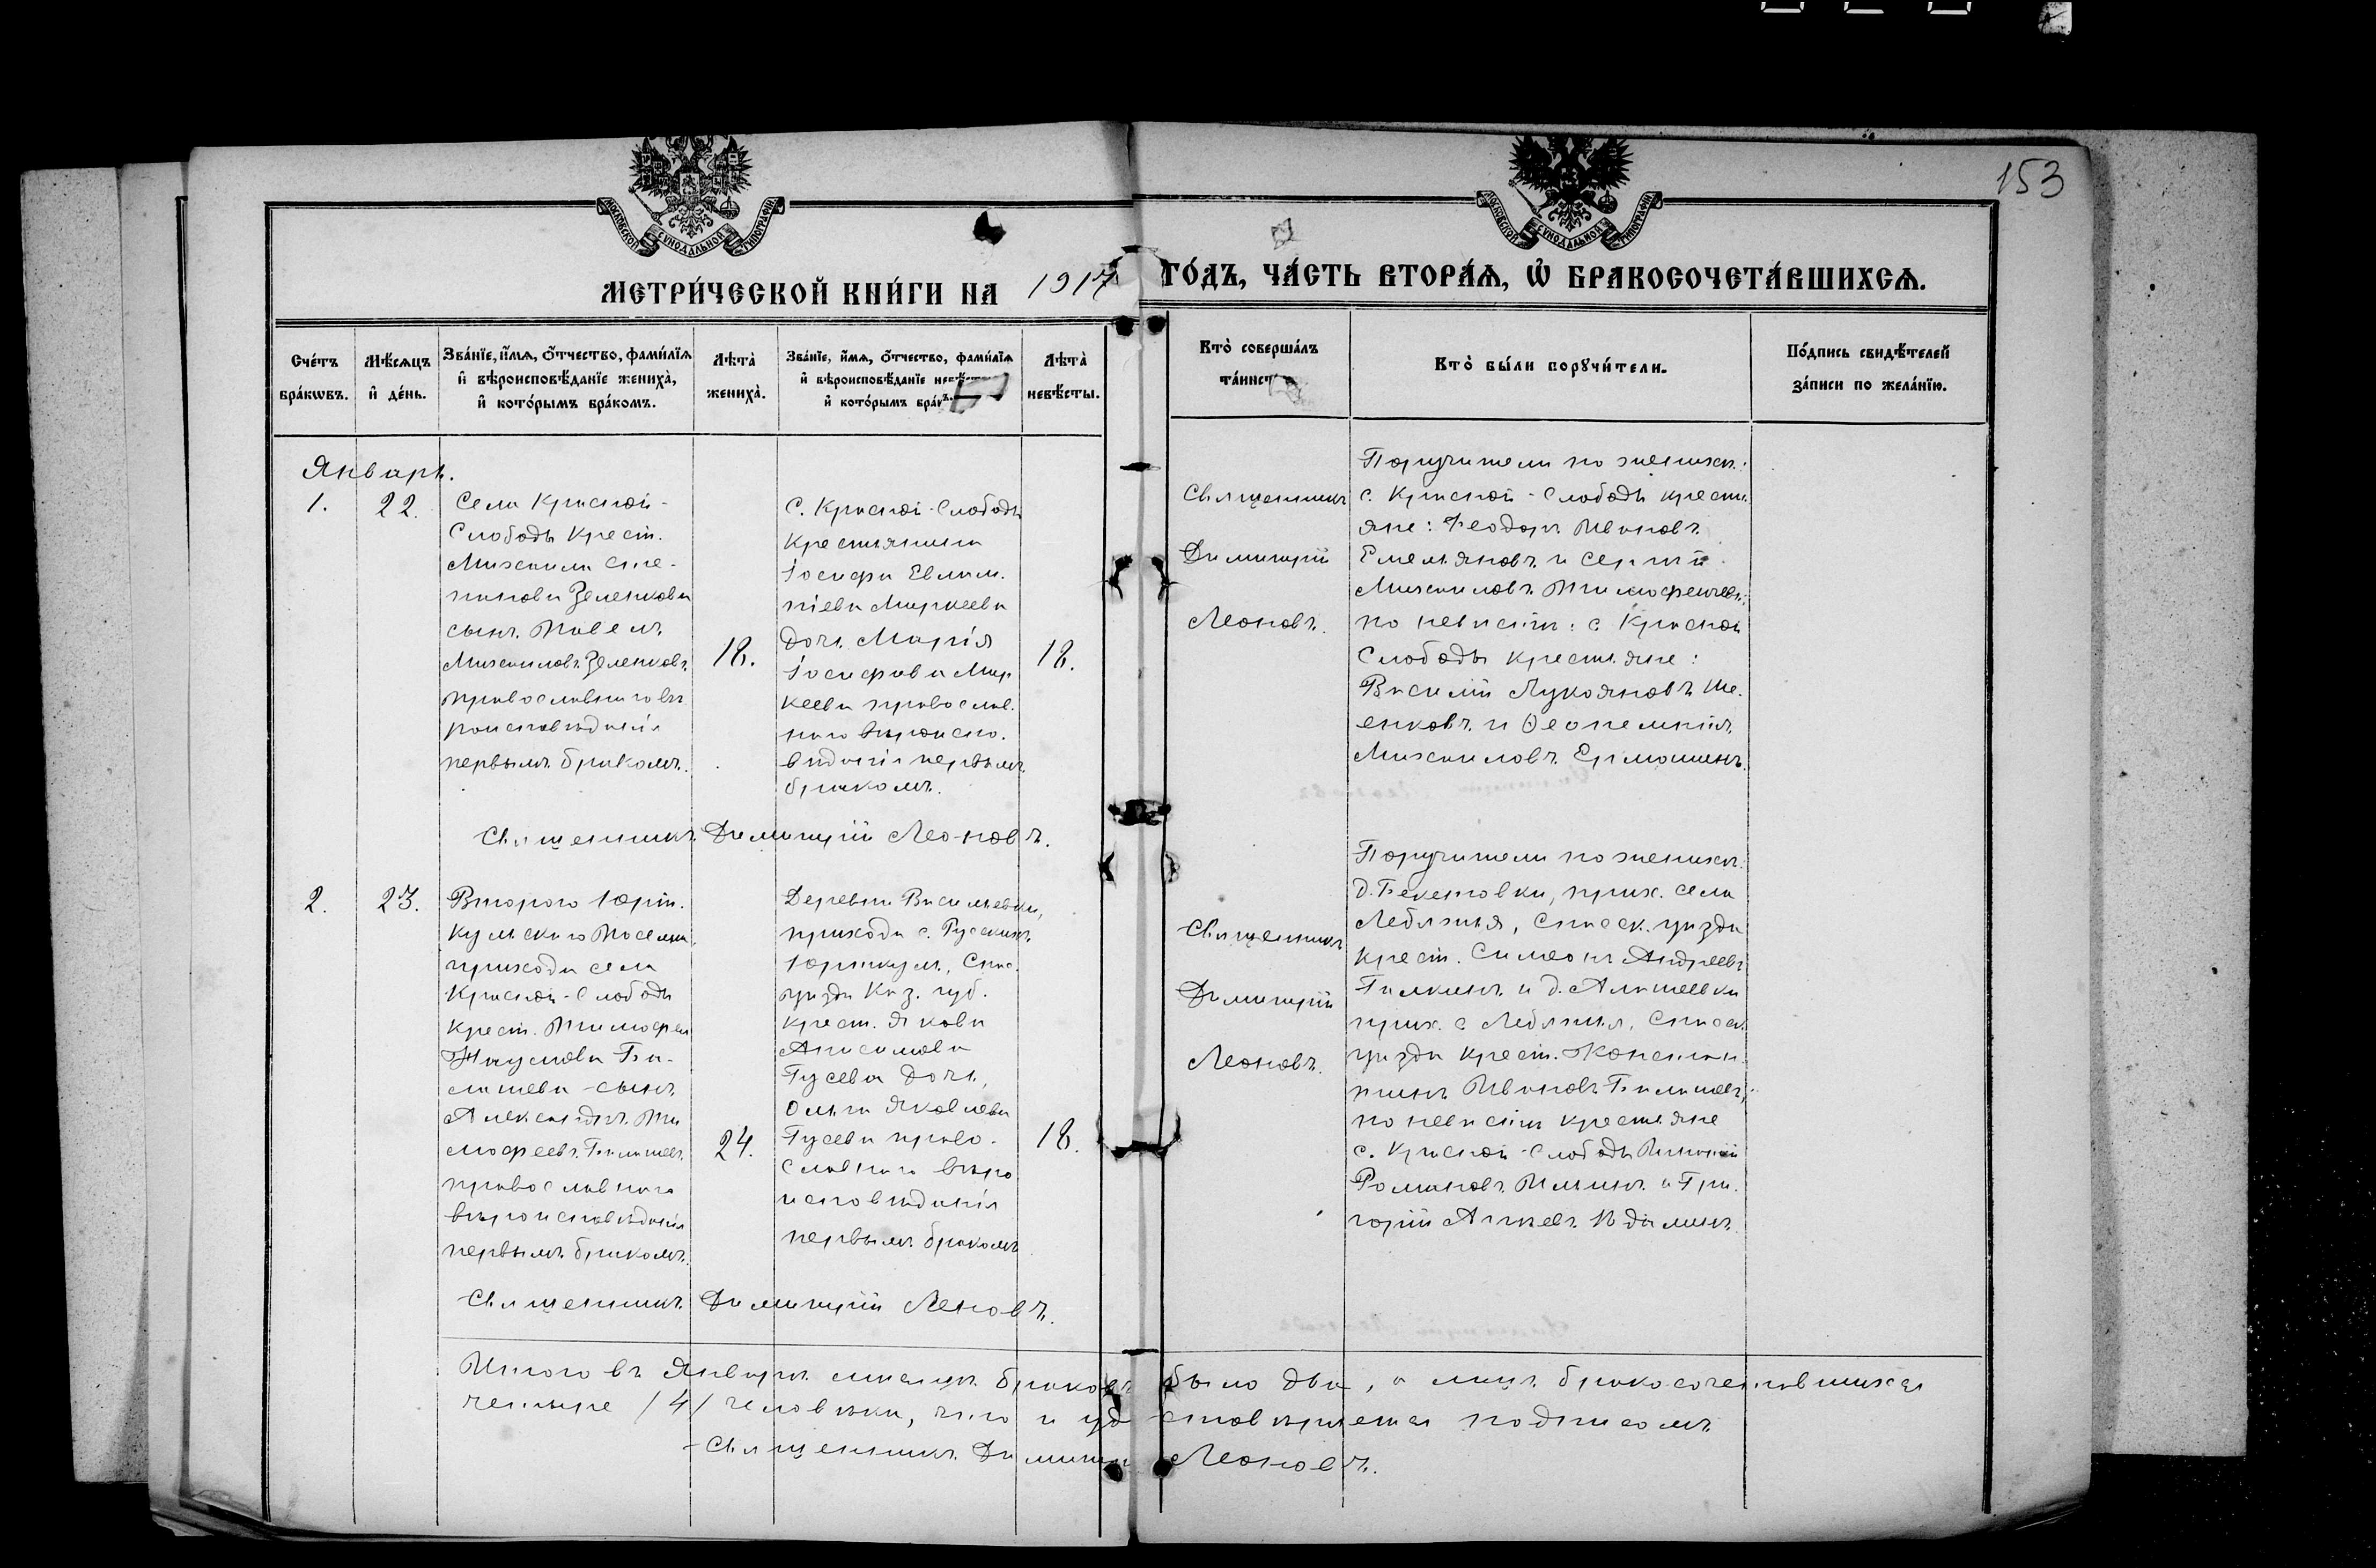 153
МОСКОВСКОЙ СУНОДАЛЬНОЙ ТИПОГРАФІИ
МОСКОВСКОЙ СУНОДАЛЬНОЙ ТИПОГРАФІИ
МЕТРИ́ЧЕСКОЙ КНИ́ГИ НА 1917 ГО́ДЪ, ЧА́СТЬ ВТОРА́Ѧ, Ѿ БРАКОСОЧЕТА́ВШИХСѦ.
Сче́тъ
бра́кѡвъ.
Мѣ́сѧцъ
и҆ де́нь.
Зва́нїе, и҆́мѧ, о҆́тчество, фами́лїѧ
и҆ вѣроисповѣ́данїе жениха̀,
и҆ кото́рымъ бра́комъ.
Лѣта̀
жениха̀.
Зва́нїе, и҆́мѧ, о҆́тчество, фами́лїѧ
и҆ вѣроисповѣ́данїе
и҆ кото́рымъ
Лѣта̀
невѣ́сты.
Кто̀ соверша́лъ
Кто̀ бы́ли порꙋчи́тели.
По́дпись свидѣ́телей
за́писи по жела́нїю.
Январь.
1.
22.
Села Красной-
Слободы Крест.
Михаила Сте-
панова Зеленкова
сынъ Павелъ
Михаиловъ Зеленковъ,
православнаго вѣ
роисповѣданія
первымъ бракомъ.
18.
С. Красной-Слободы
Крестьянина
Іосифа Евлам.
піева Маркеева
дочь Марія
Іосифова Мар
кеева православ.
наго вѣроиспо.
вѣданія первымъ
бракомъ.
18.
Священникъ
Димитрій
Леоновъ.
Поручители по женихѣ:
с. Красной-Слободы крестья
яне: Феодоръ Ивановъ
Емельяновъ и Сергій
Михаиловъ
по невѣстѣ: с. Красной
Слободы крестьяне:
Василій Лукояновъ
и Ѳеопемптъ
Михаиловъ Ермошинъ.
Священникъ Димитрій Леоновъ.
2.
23.
Второго Юрт.
кульскаго Поселка,
прихода села
Красной-Слободы
Крест. Тимофея
Наумова Ба-
лашева сынъ
Александръ Ти
мофеевъ Балашевъ
православнаго
вѣроисповѣданія
первымъ бракомъ.
24.
Деревни Васильевки,
прихода с. Русскихъ
Юрткуль, Спас.
уѣзда Каз. губ.
крест. Якова
Анисимова
Гусева дочь,
Ольга Яковлева
Гусева право-
славнаго вѣро
исповѣданія
первымъ бракомъ
18.
Священникъ
Димитрій
Леоновъ.
Поручители по женихѣ
д. Бекетовки, прих. села
Лебяжья, Спасск. уѣзда
крест. Симеонъ Андреевъ
Галкинъ и д.
прих. с Лебяжья, Спасск.
уѣзда крест. Констан-
тинъ Ивановъ Балашевъ,
по невѣстѣ крестьяне
с. Красной-Слободы
Романовъ Ильинъ и Гри.
горій
Священникъ Димитрій Леоновъ.
Итого въ Январѣ мѣсяцѣ браковъ было два, а лицъ бракосочетавшихся
четыре /4/ человѣка, что и удостовѣряется подписомъ
Священникъ Димитрій Леоновъ.